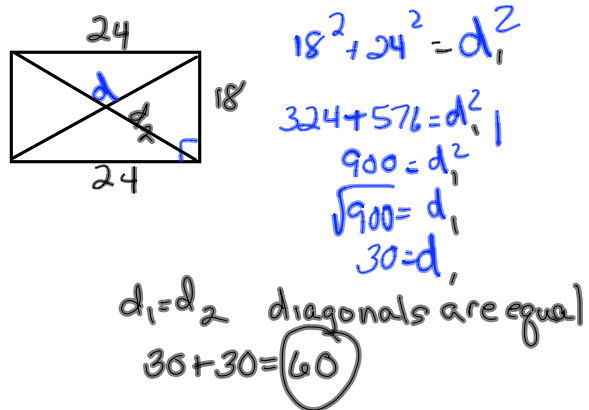 24
d
d₂
18
24
18² + 24² = d₁²
324 + 576 = d₁²
900 = d₁²
√900 = d₁
30 = d₁
d₁ = d₂ diagonals are equal
30 + 30 = 60